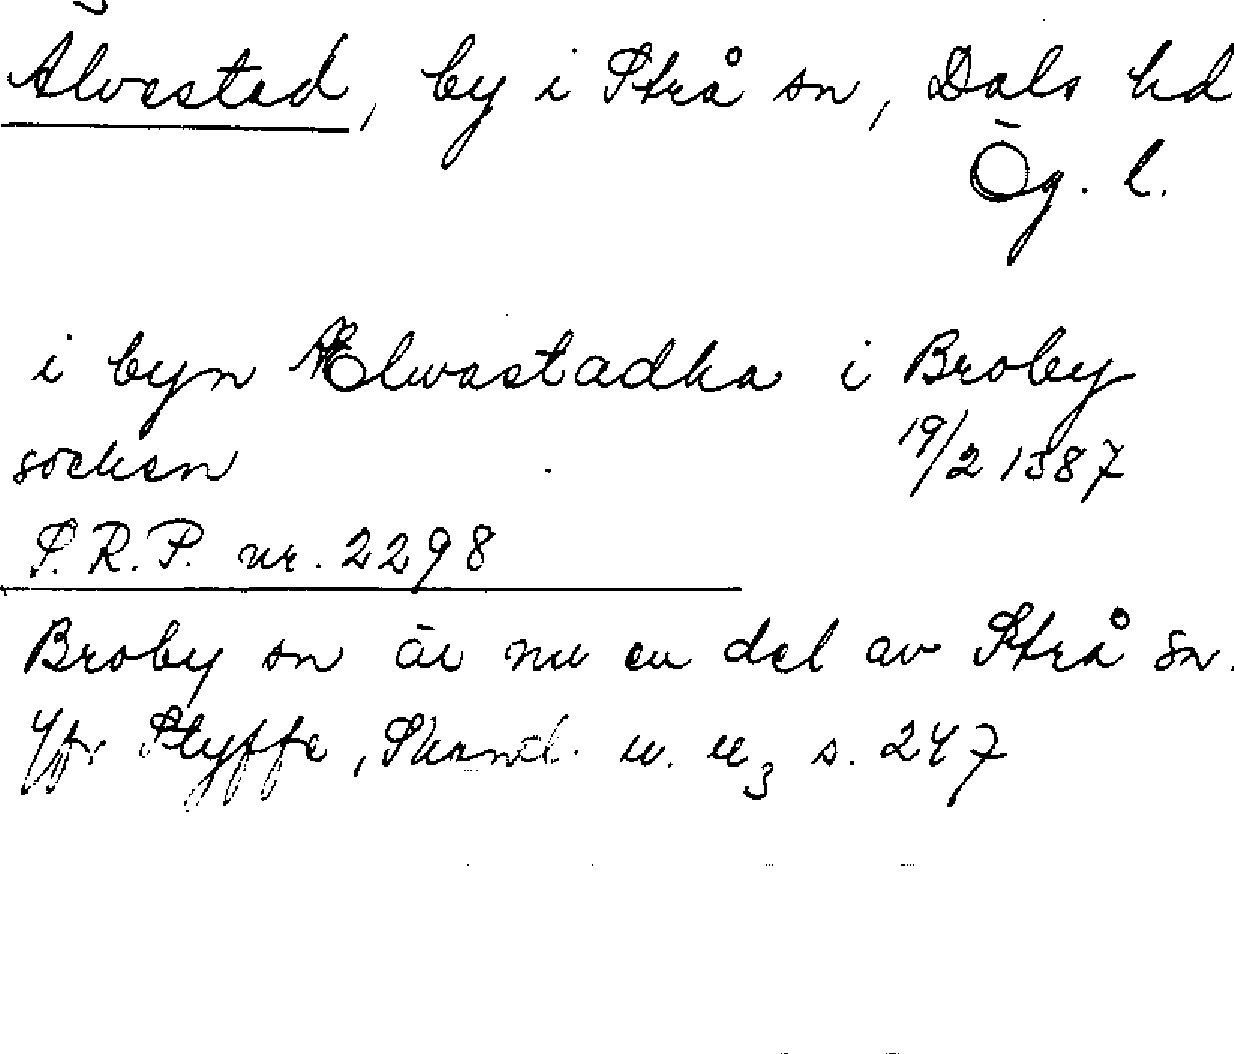 Älvestad, by i Strå sn, Dals hd
Ög. l.
i byn Elwastadha i Broby
socken 19/2 1387
S.R.P. nr. 2298
Broby sn är nu en del av Strå sn.
Jfr Styffe, Skand. u. u3 s. 247